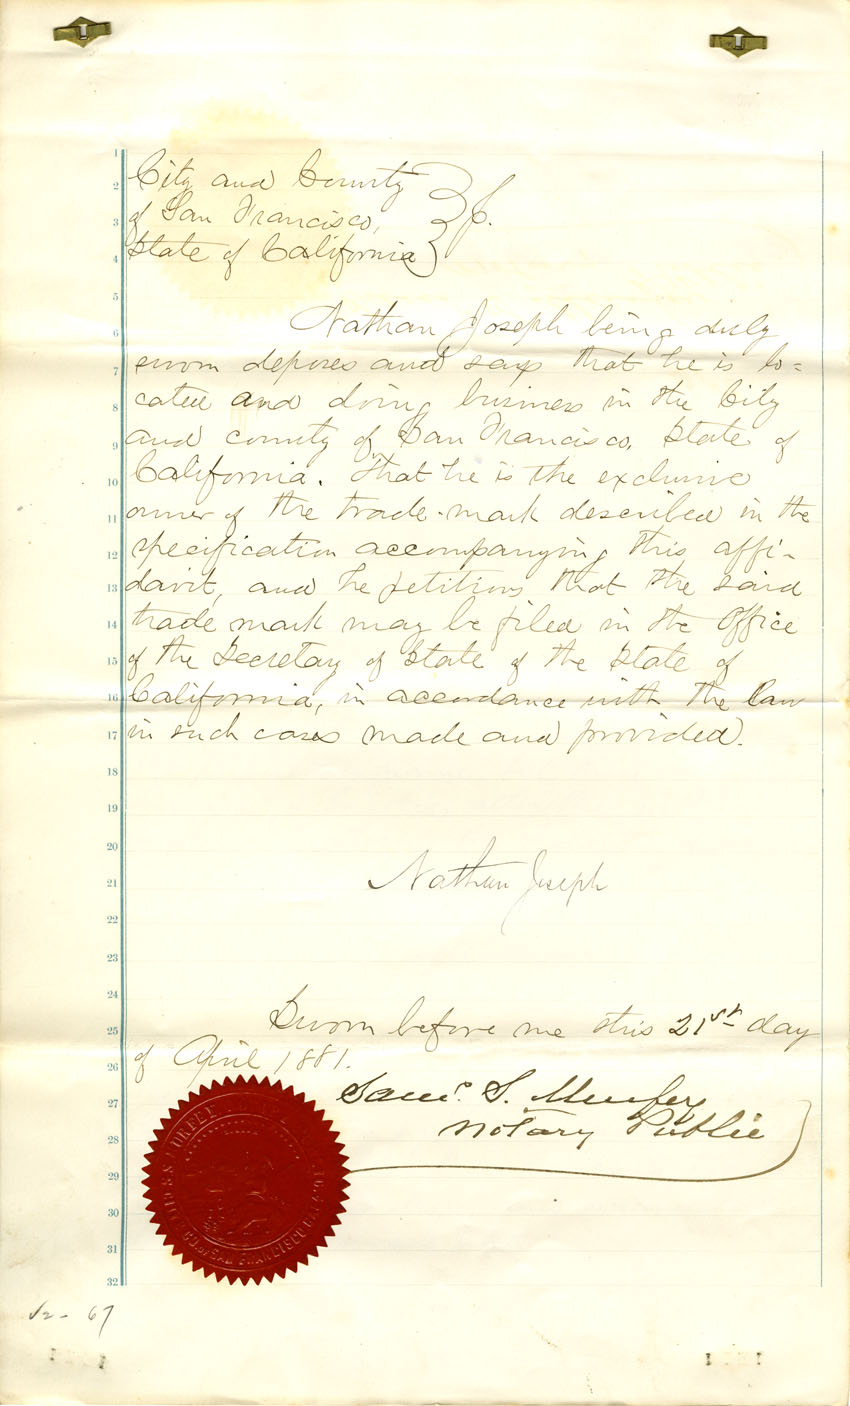 City and County
of San Francisco,
State of California
Nathan Joseph being duly
sworn deposes and says that he is lo=
cated and doing business in the City
and county of San Francisco, State of
California. That he is the exclusive
owner of the trade-mark described in the
specification accompanying this affi-
davit, and he petitions that the said
trade mark may be filed in the Office
of the Secretary of State of the State of
California, in accordance with the law
in such cases made and provided.
Nathan Joseph
Sworn before me this 21st day
of April 1881.
Saml. S. Murfey
Notary Public
1
2
3
4
5
6
7
8
9
10
11
12
13
14
15
16
17
18
19
20
21
22
23
24
25
26
27
28
29
30
31
32
67